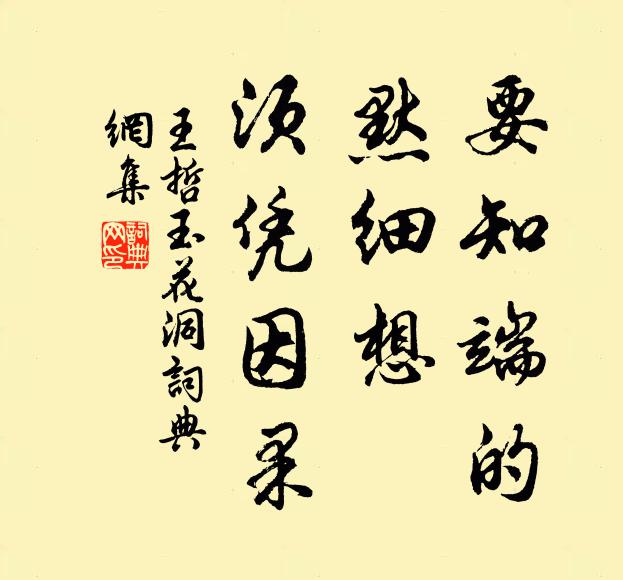 要知端的
默细想
须凭因果
王哲玉花洞詞典
網集
詞典
网印